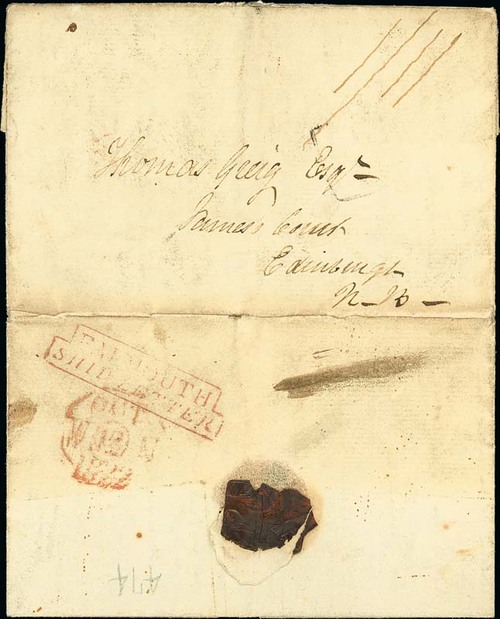 Thomas Greig Esqr
James's Court
Edinburgh
N. B.
FALMOUTH
SHIP LETTER
OCT
12
474